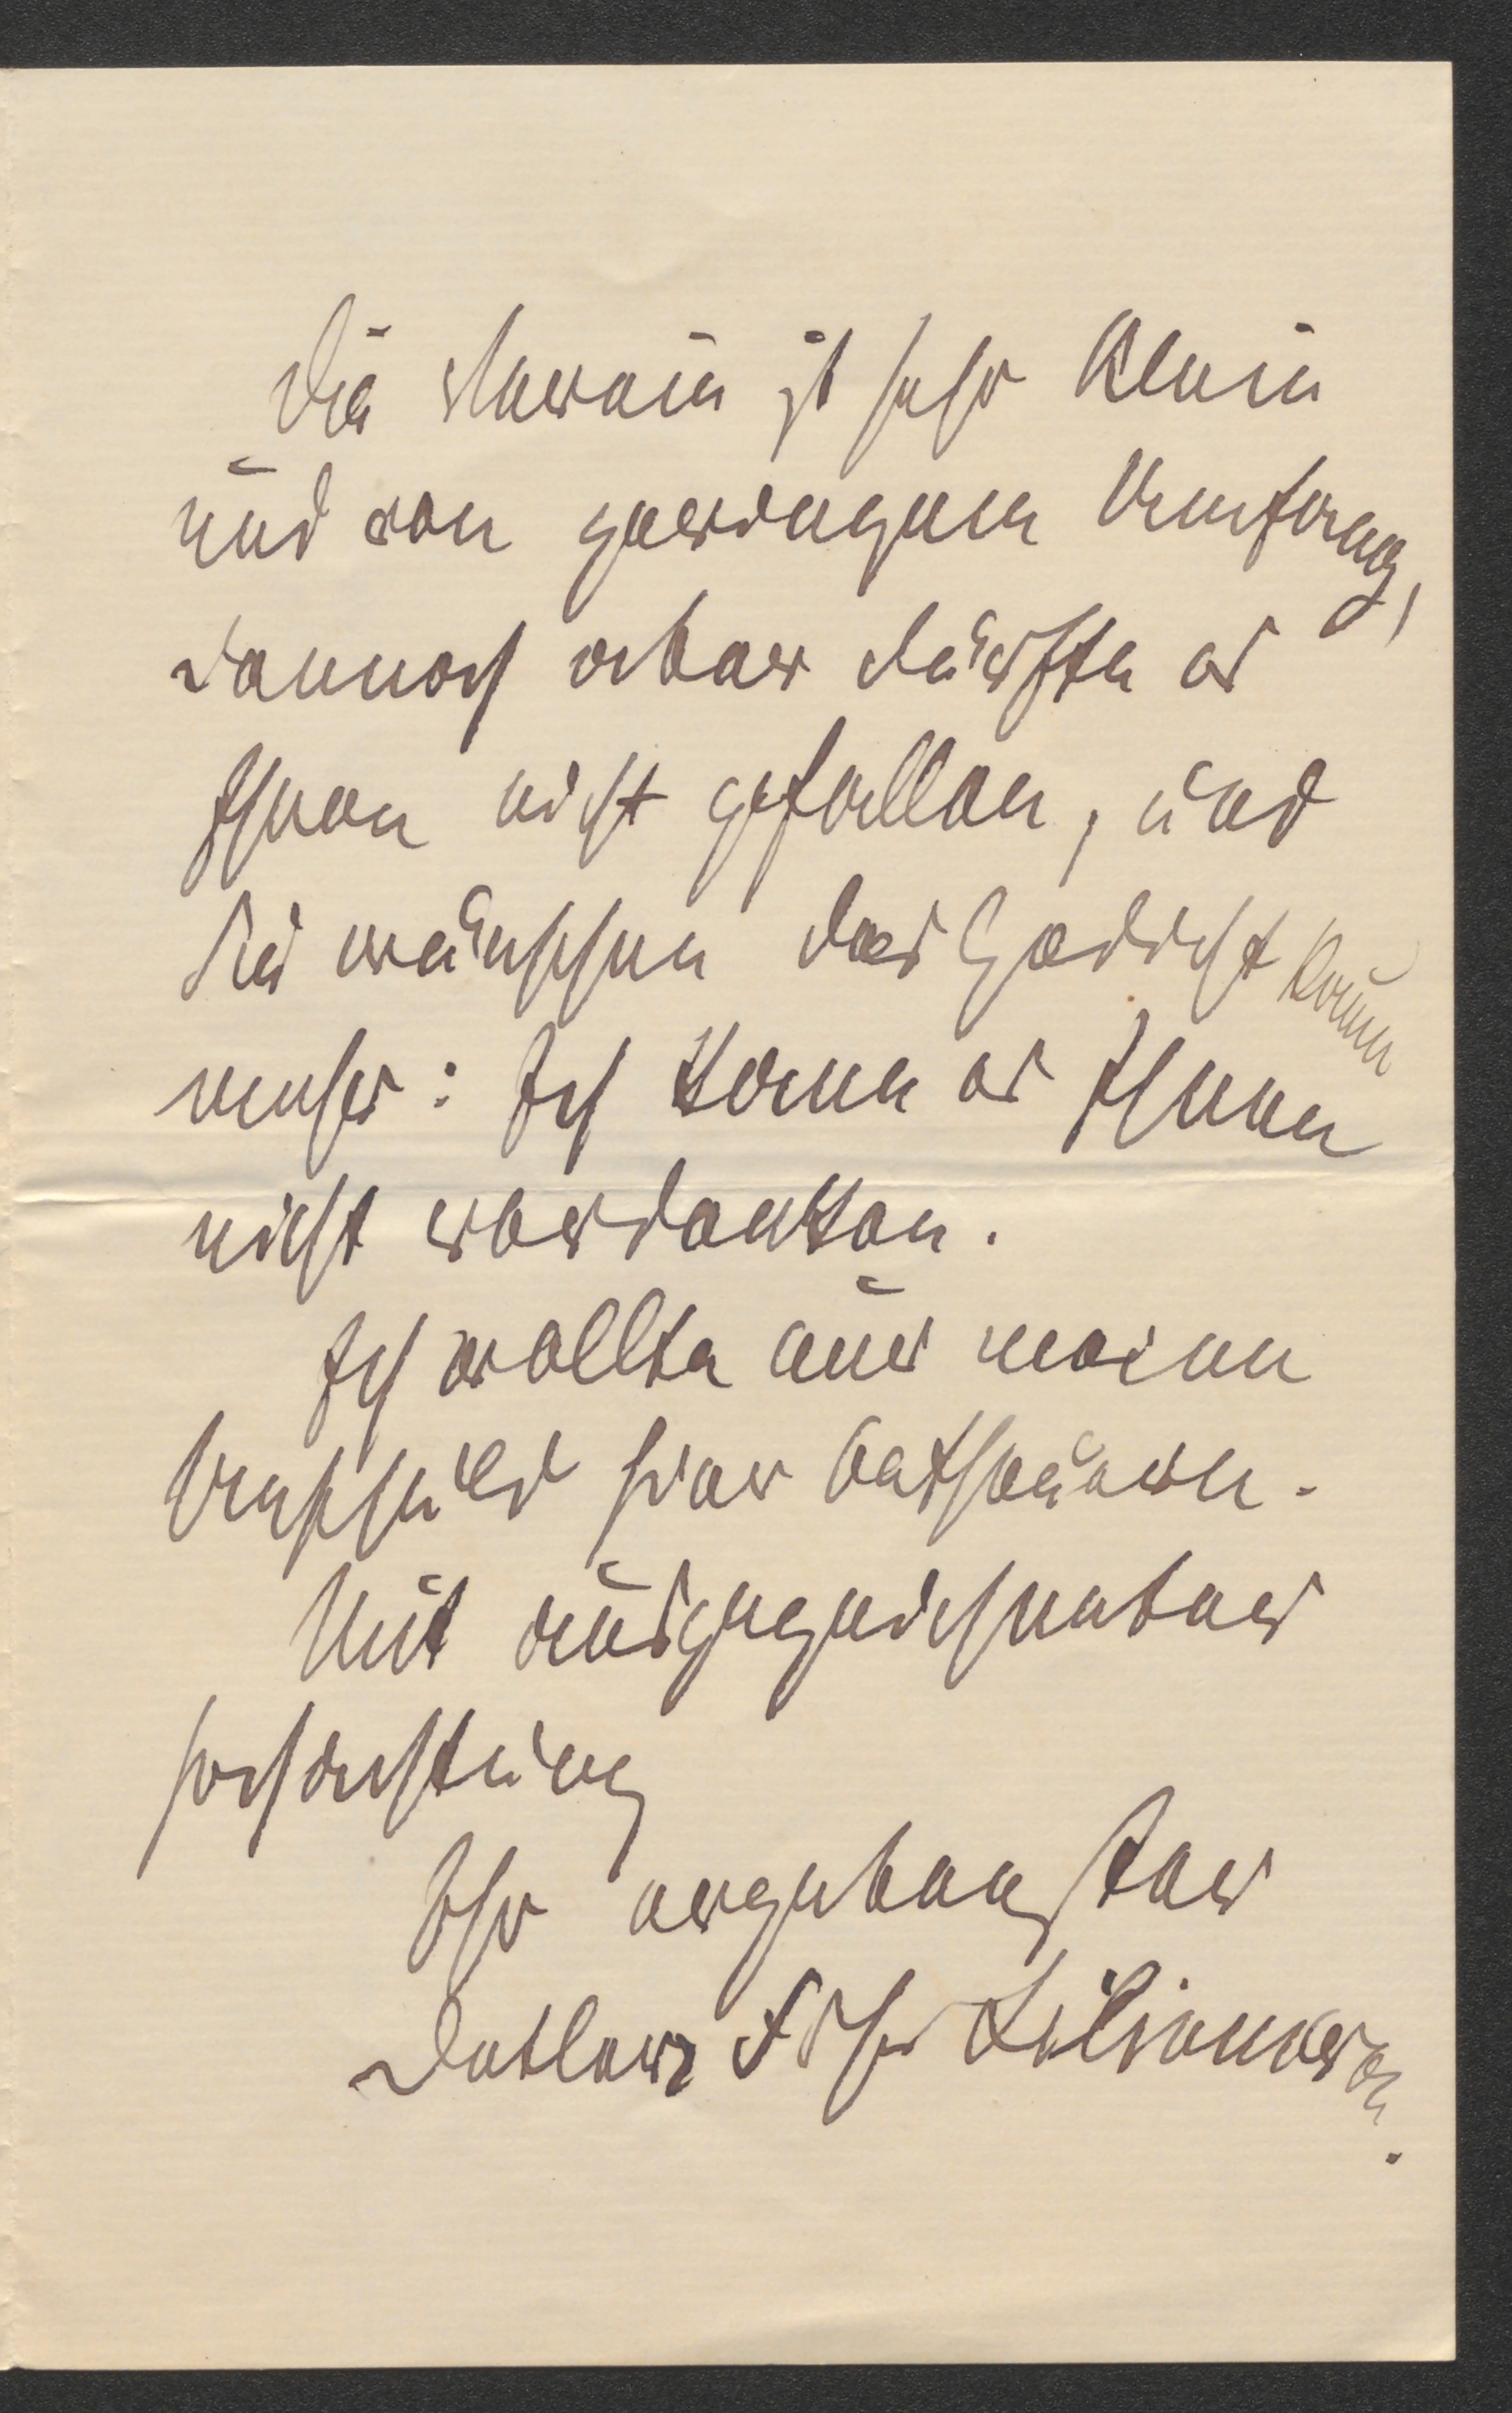 Die ist sehr klein
und von geringem Umfang,
dennoch aber dürfte es
Ihnen nicht gefallen, und
Sie wünschen das Gedicht kaum
mehr: Ich kann es Ihnen
nicht verdenken.
Ich wollte nur meine
Unschuld hier betheuern.
Mit ausgezeichneter
Hochachtung
Ihr ergebenster
Detlev Frhr Liliencron.